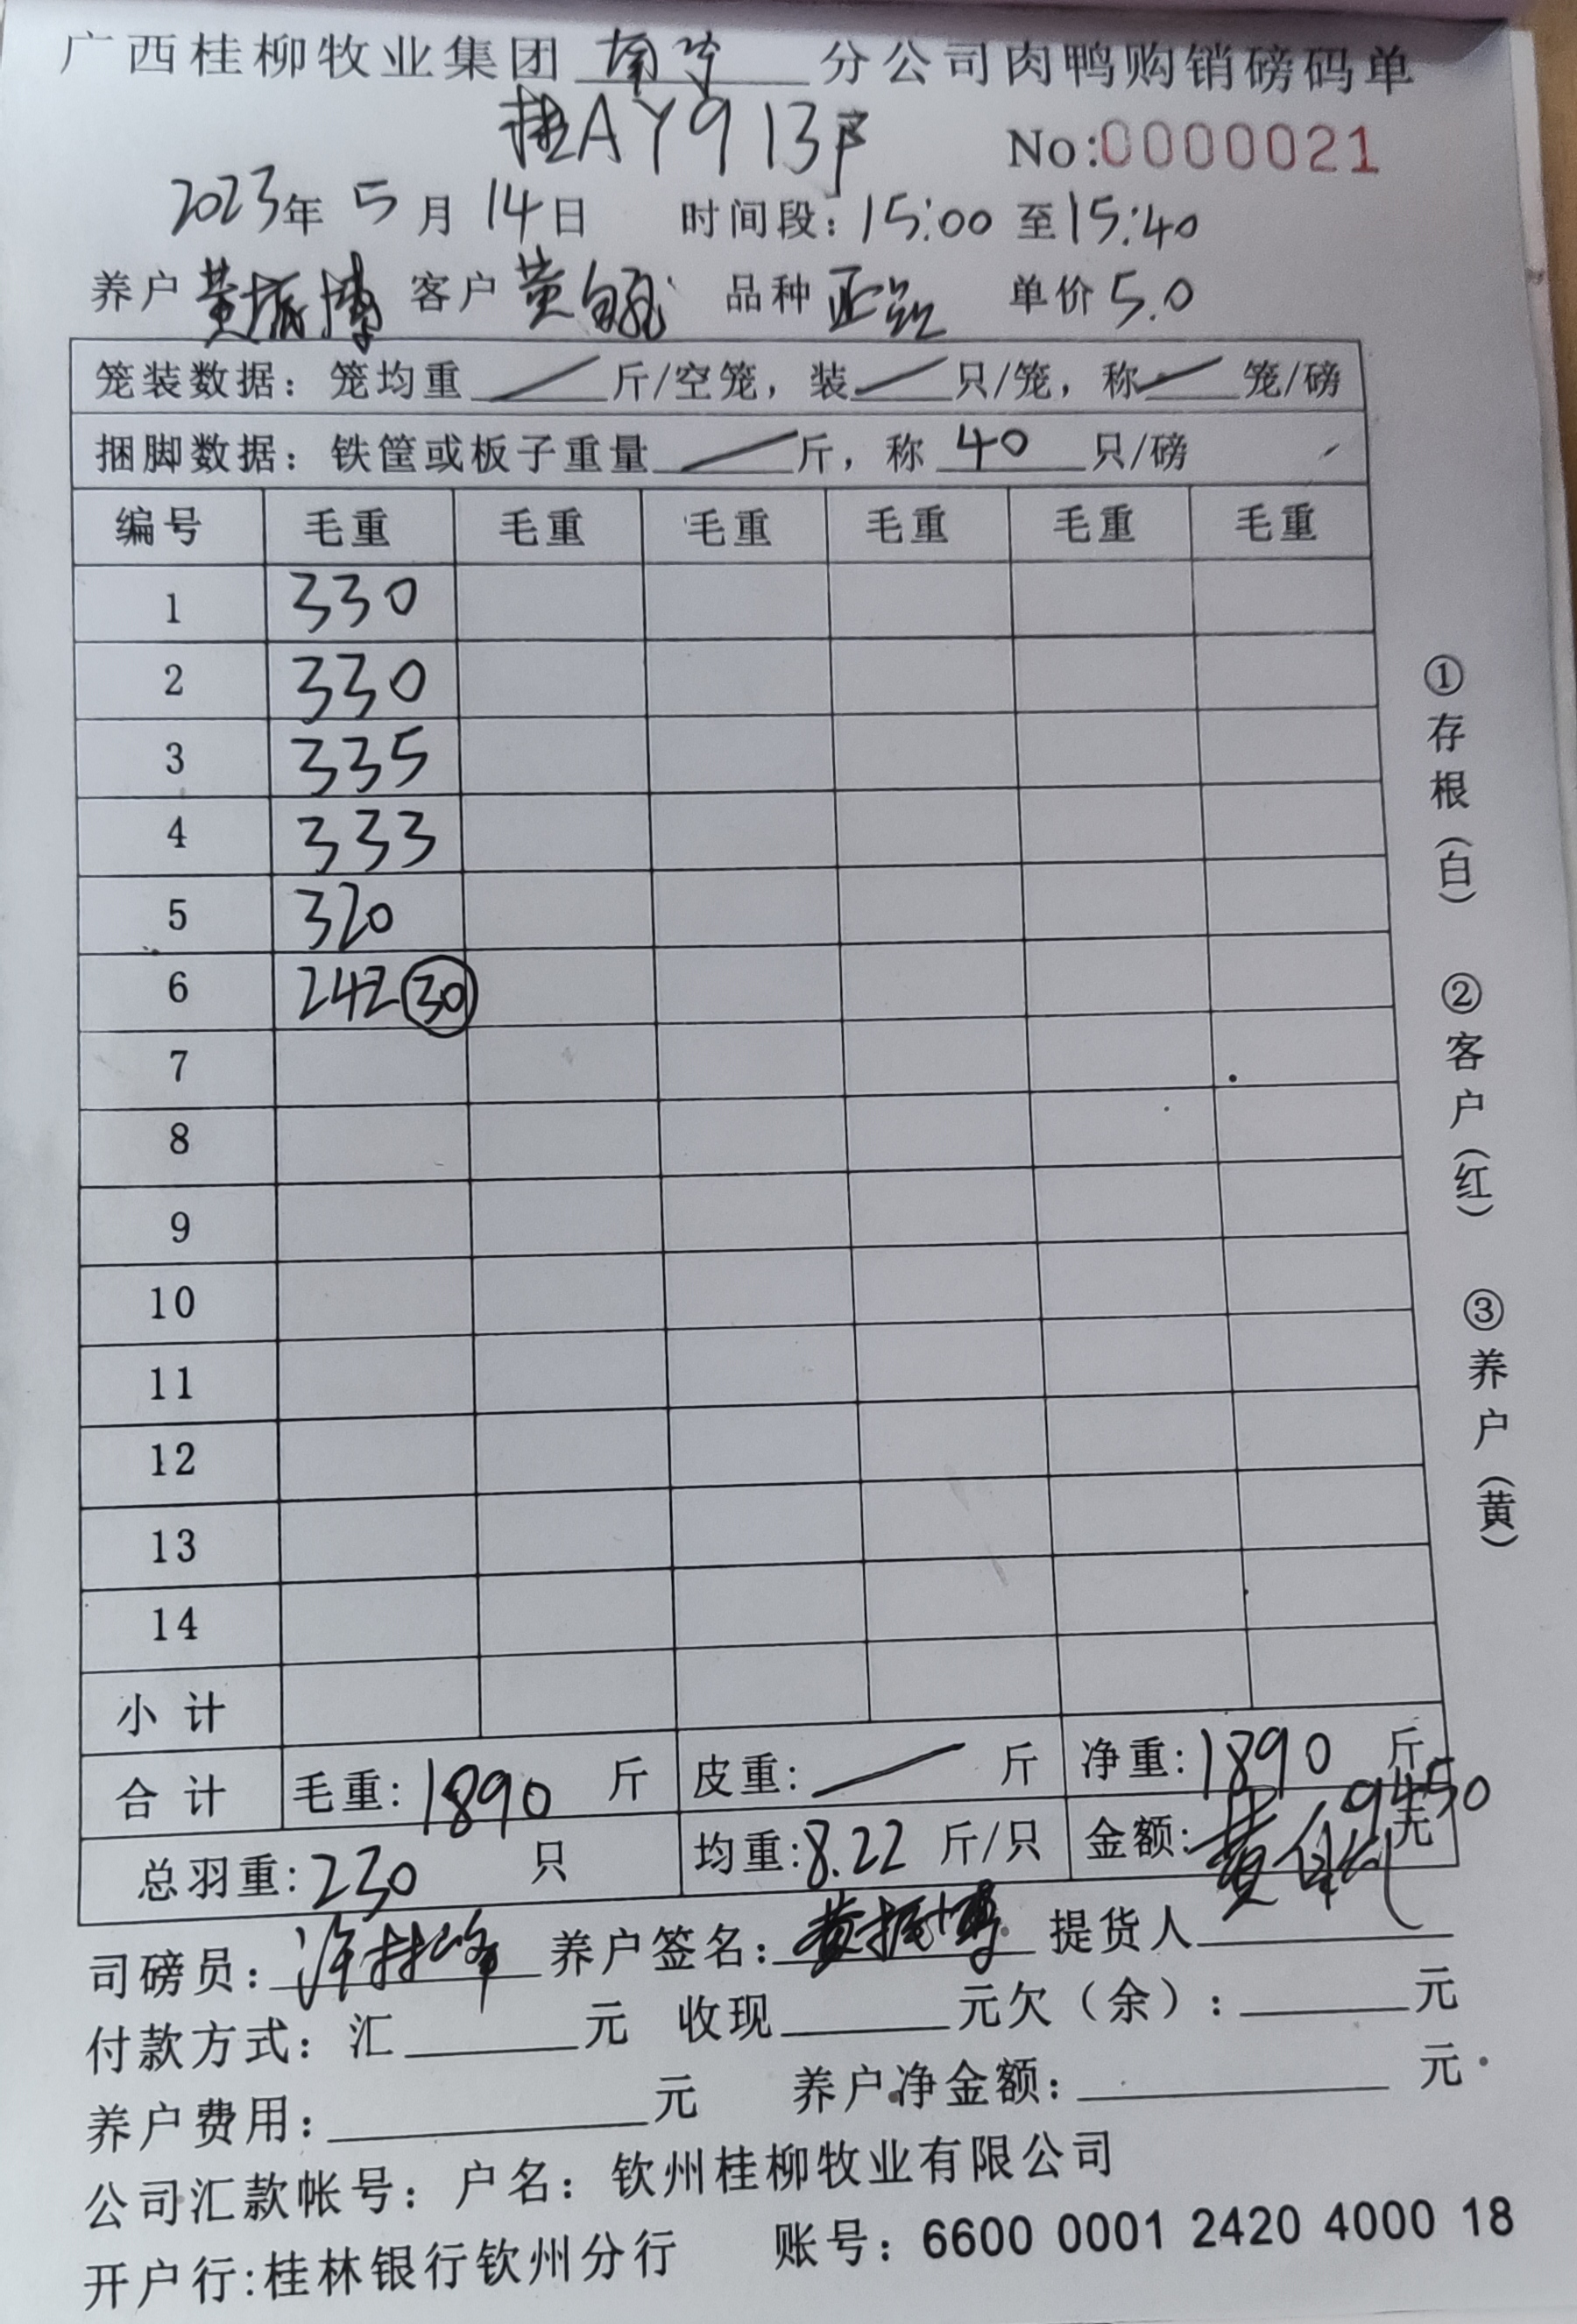 广西桂柳牧业集团 南宁 分公司肉鸭购销磅码单
桂AY913
No:0000021
2023年 5月 14日 时间段：15:00 至15:40
养户 黄振博 客户 黄 品种 单价 5.0
笼装数据：笼均重 / 斤/空笼，装 / 只/笼，称 / 笼/磅
捆脚数据：铁筐或板子重量 / 斤，称 40 只/磅
编号 毛重 毛重 毛重 毛重 毛重 毛重
1 330
2 330
3 335
4 333
5 320
6 242 30
7
8
9
10
11
12
13
14
小 计
合 计 毛重: 1890 斤 皮重: / 斤 净重: 1890 斤
总羽重: 230 只 均重: 8.22 斤/只 金额: 9450 元
司磅员： 养户签名：黄振博 提货人 黄
付款方式：汇 元 收现 元欠（余）： 元
养户费用： 元 养户净金额： 元
公司汇款帐号：户名：钦州桂柳牧业有限公司
开户行:桂林银行钦州分行 账号：6600 0001 2420 4000 18
①存根（白） ②客户（红） ③养户（黄）